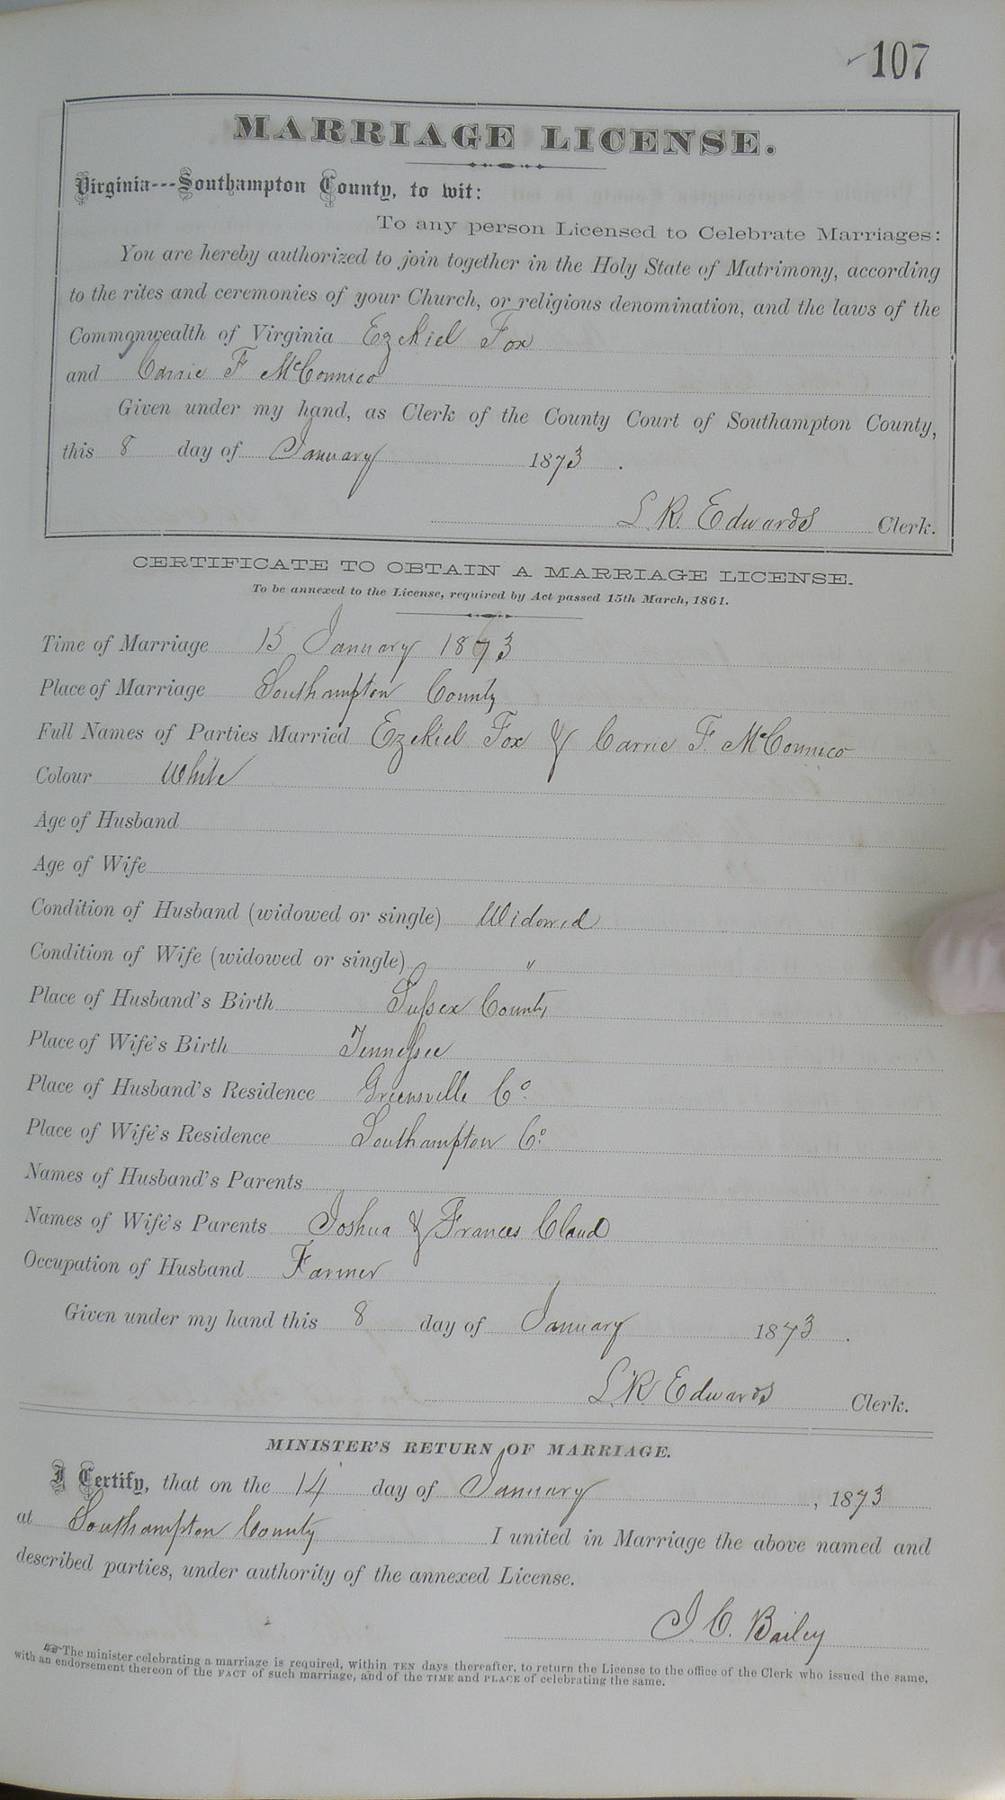 107
MARRIAGE LICENSE.
Virginia---Southampton County, to wit:
To any person Licensed to Celebrate Marriages:
You are hereby authorized to join together in the Holy State of Matrimony, according
to the rites and ceremonies of your Church, or religious denomination, and the laws of the
Commonwealth of Virginia Ezekiel Fox
and Carrie F McConnico
Given under my hand, as Clerk of the County Court of Southampton County,
this 8 day of January 1873.
L. R. Edwards Clerk.
CERTIFICATE TO OBTAIN A MARRIAGE LICENSE.
To be annexed to the License, required by Act passed 15th March, 1861.
Time of Marriage 15 January 1873
Place of Marriage Southampton County
Full Names of Parties Married Ezekiel Fox & Carrie F. McConnico
Colour White
Age of Husband
Age of Wife
Condition of Husband (widowed or single) Widowed
Condition of Wife (widowed or single) "
Place of Husband's Birth Sussex County
Place of Wife's Birth Tennessee
Place of Husband's Residence Greensville Co.
Place of Wife's Residence Southampton Co.
Names of Husband's Parents
Names of Wife's Parents Joshua & Frances Claud
Occupation of Husband Farmer
Given under my hand this 8 day of January 1873.
L. R. Edwards Clerk.
MINISTER'S RETURN OF MARRIAGE.
I Certify, that on the 14 day of January, 1873
at Southampton County I united in Marriage the above named and
described parties, under authority of the annexed License.
J. C. Bailey
The minister celebrating a marriage is required, within TEN days thereafter, to return the License to the office of the Clerk who issued the same,
with an endorsement thereon of the FACT of such marriage, and of the TIME and PLACE of celebrating the same.